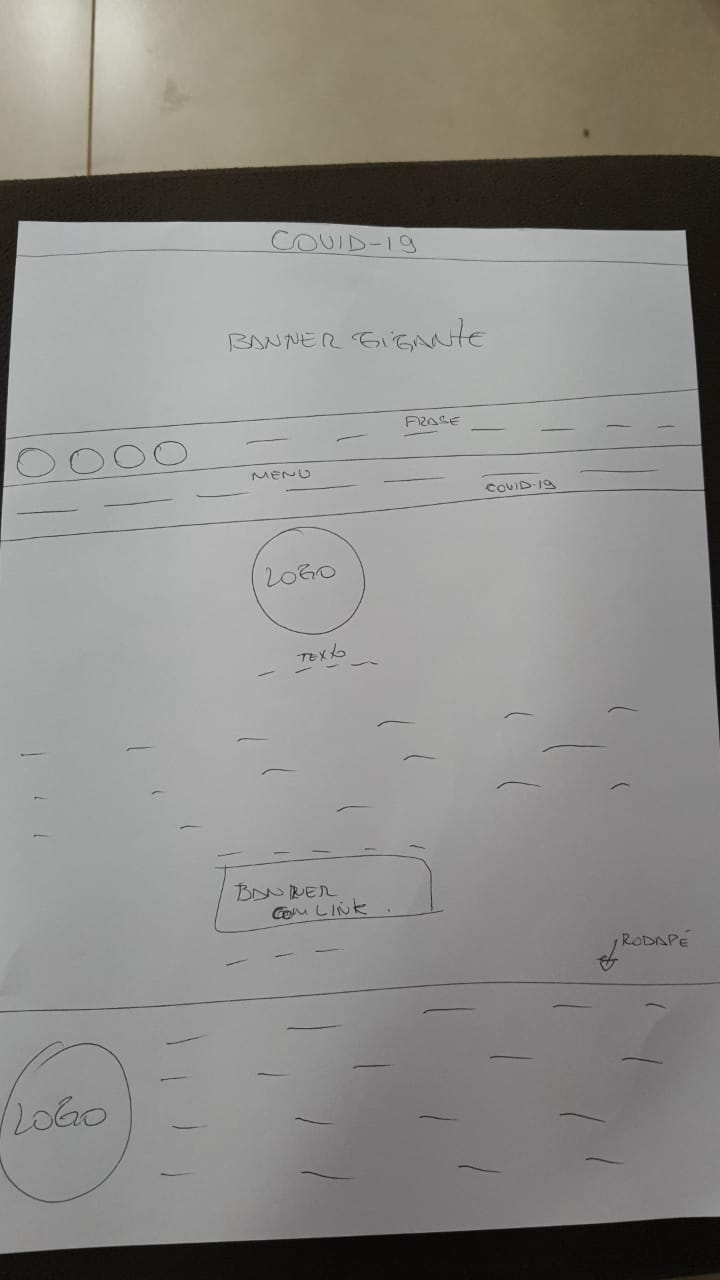 COVID-19
BANNER GIGANTE
FRASE
MENU
COVID-19
LOGO
TEXTO
BANNER
COM LINK.
RODAPÉ
LOGO